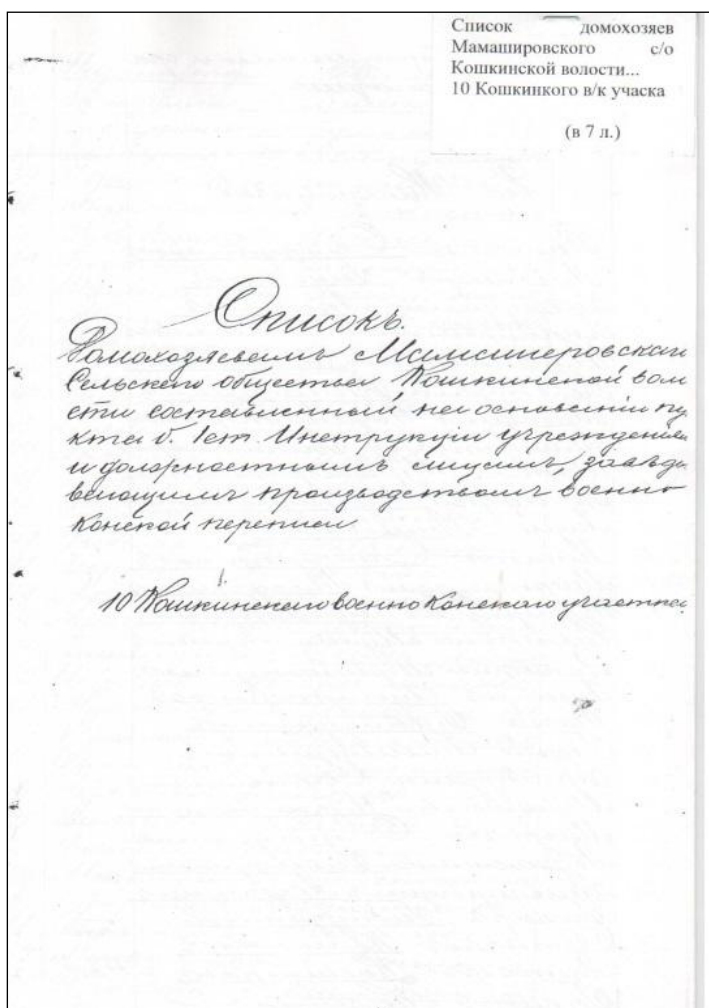 Список домохозяев
Мамашировского с/о
Кошкинской волости...
10 Кошкинкого в/к учаска
(в 7 л.)
Списокъ.
Домохозяевамъ Мамашеровскаго
Сельскаго общества Кошкинской вол
сти составленный на основании пу
кта б. 1 ст. Инструкции учреждениям
и должностнымъ лицамъ, завѣды
вающимъ производствомъ военно
конской переписи
10 Кошкинскаго военно Конскаго участка